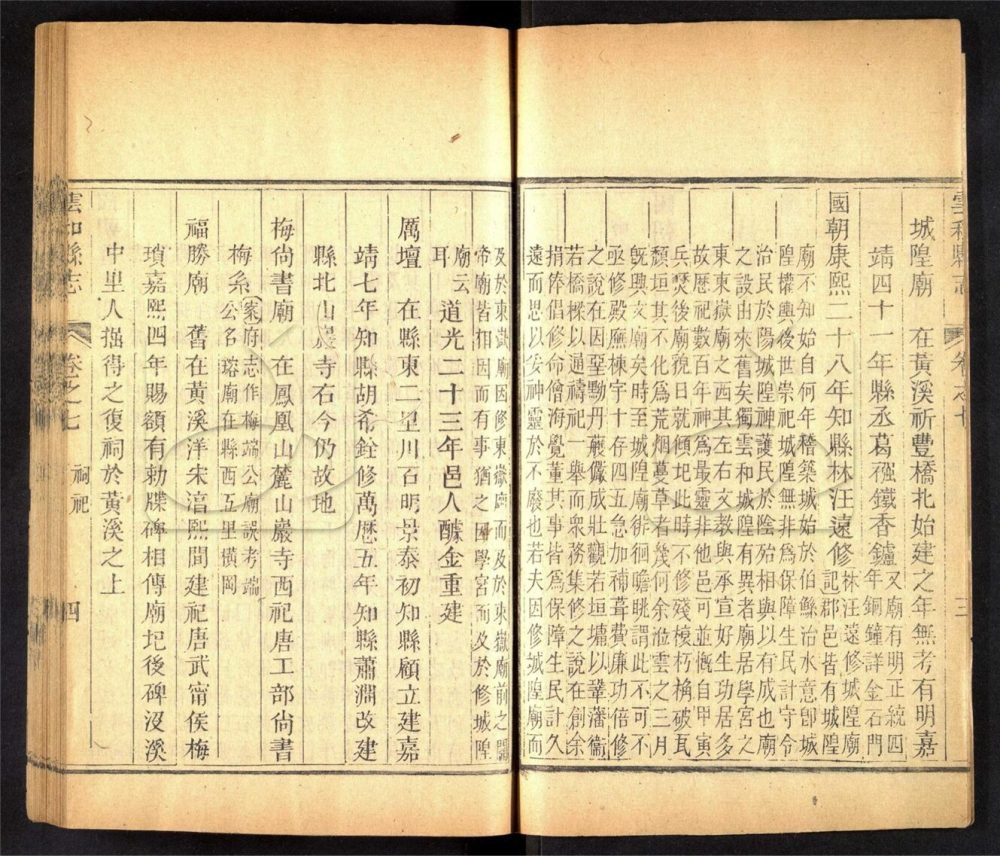 雲和縣志
卷之七
三
城隍廟　在黃溪祈豐橋北始建之年無考有明嘉
靖四十一年縣丞葛强鐵香鑪又廟有明正統四
年銅鐘詳金石門
國朝康熙二十八年知縣林汪遠修林汪遠修城隍廟
記郡邑皆有城隍
廟不知始自何年稽築城始於伯鯀治水意卽城
隍權輿後世崇祀城隍無非爲保障生民計守令
治民於陽城隍神護民於陰殆相與以有成也廟
之設由來舊矣獨雲和城隍有異者廟居學宮之
東東嶽廟之西其左右文教與承宣好生功居多
故歷祀數百年神爲最靈非他邑可並慨自甲寅
兵燹後廟貌日就傾圮此時不修殘椽朽桷破瓦
頽垣其不化爲荒烟蔓草者幾何余涖雲之三月
旣興文廟矣時至城隍廟徘徊瞻眺謂此不可不
亟修修殿廡棟宇十存四五急加補葺費廉功倍修
之說在因堊黝丹雘儼成壯觀若垣墉以鞏藩衞
若橋樑以通禱祀一舉而衆務集修之說在創余
捐俸倡修命僧海覺董其事皆爲保障生民計久
遠而思以妥神靈於不廢也若夫因修城隍廟而
及於東嶽廟因修東嶽廟而及於東嶽廟前之關
帝廟皆相因而有事猶之因學宮而及於修城隍
廟云
耳
道光二十三年邑人醵金重建
厲壇　在縣東二里川石明景泰初知縣顧立建嘉
靖七年知縣胡希銓修萬歷五年知縣蕭澗改建
縣北山巖寺右今仍故地
梅尚書廟　在鳳凰山麓山巖寺西祀唐工部尚書
梅系案府志作梅端公廟誤考端
公名瑢廟在縣西五里橫岡
福勝廟　舊在黃溪洋宋淳熙間建祀唐武甯侯梅
瑣嘉熙四年賜額有勅牒碑相傳廟圮後碑沒溪
中里人掘得之復祠於黃溪之上
雲和縣志
卷之七
祠祀
四